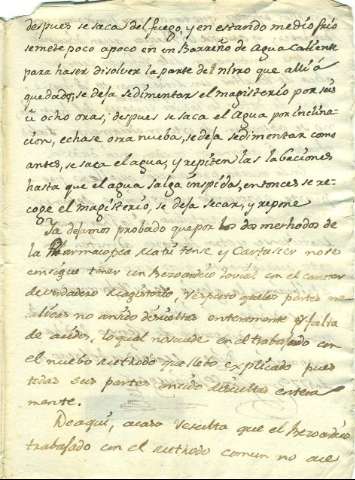 despues se saca del fuego, y en estando medio frio
se mete poco apoco en un Barreño de Agua Caliente
para haser disolver la parte de nitro que alli á
quedado, se deja sedimentar el magisterio por
ú ocho oras, despues se saca el Agua por inclina-
cion, echase otra nueba, se deja sedimentar como
antes, se saca el agua, y repiten las labaciones
hasta que el agua salga insipida, entonces se re-
coge el magisterio, se deja secar, y repone
Ya dejimos probado que por los dos methodos de
la Pharmacopea Matritense y no se
consigue tener un Bezoardico Jovial con el caracter
de verdadero Magisterio, respeto que las partes
no an sido desueltas enteramente por falta
de acido, lo qual no susede en el trabajado con
el nuebo methodo que llebo explicado pues
todas sus partes an sido desueltas entera
mente.
De aqui, acaso resulta que el Bezoardico
trabajado con el methodo comun no ace